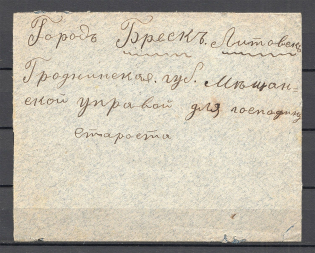 Городъ Брескъ. Литовскъ
Гродненская. губ. Мѣщан-
ской управой для господину
староста